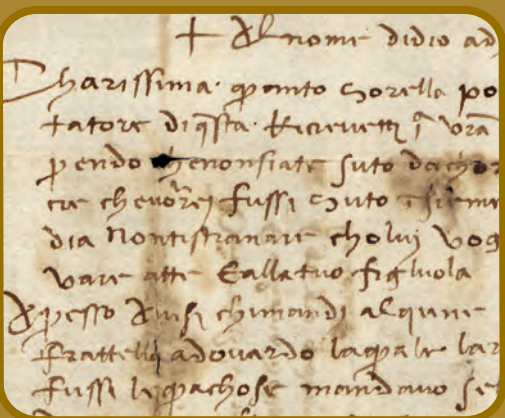 + Al nome didio ad
Charissima quanto sorella po
tatore di q̄sta Ricievetti i^a vr̄a
p̱endo chenonsiate suto dachor
cre chevorrei fussi suto
dia Nontistranare cholui vog
vare atte Eallatuo figliuola
Apresso Avisi chimandi alqune
frattello adovardo laquale lar
fussi lequachose mandavo se